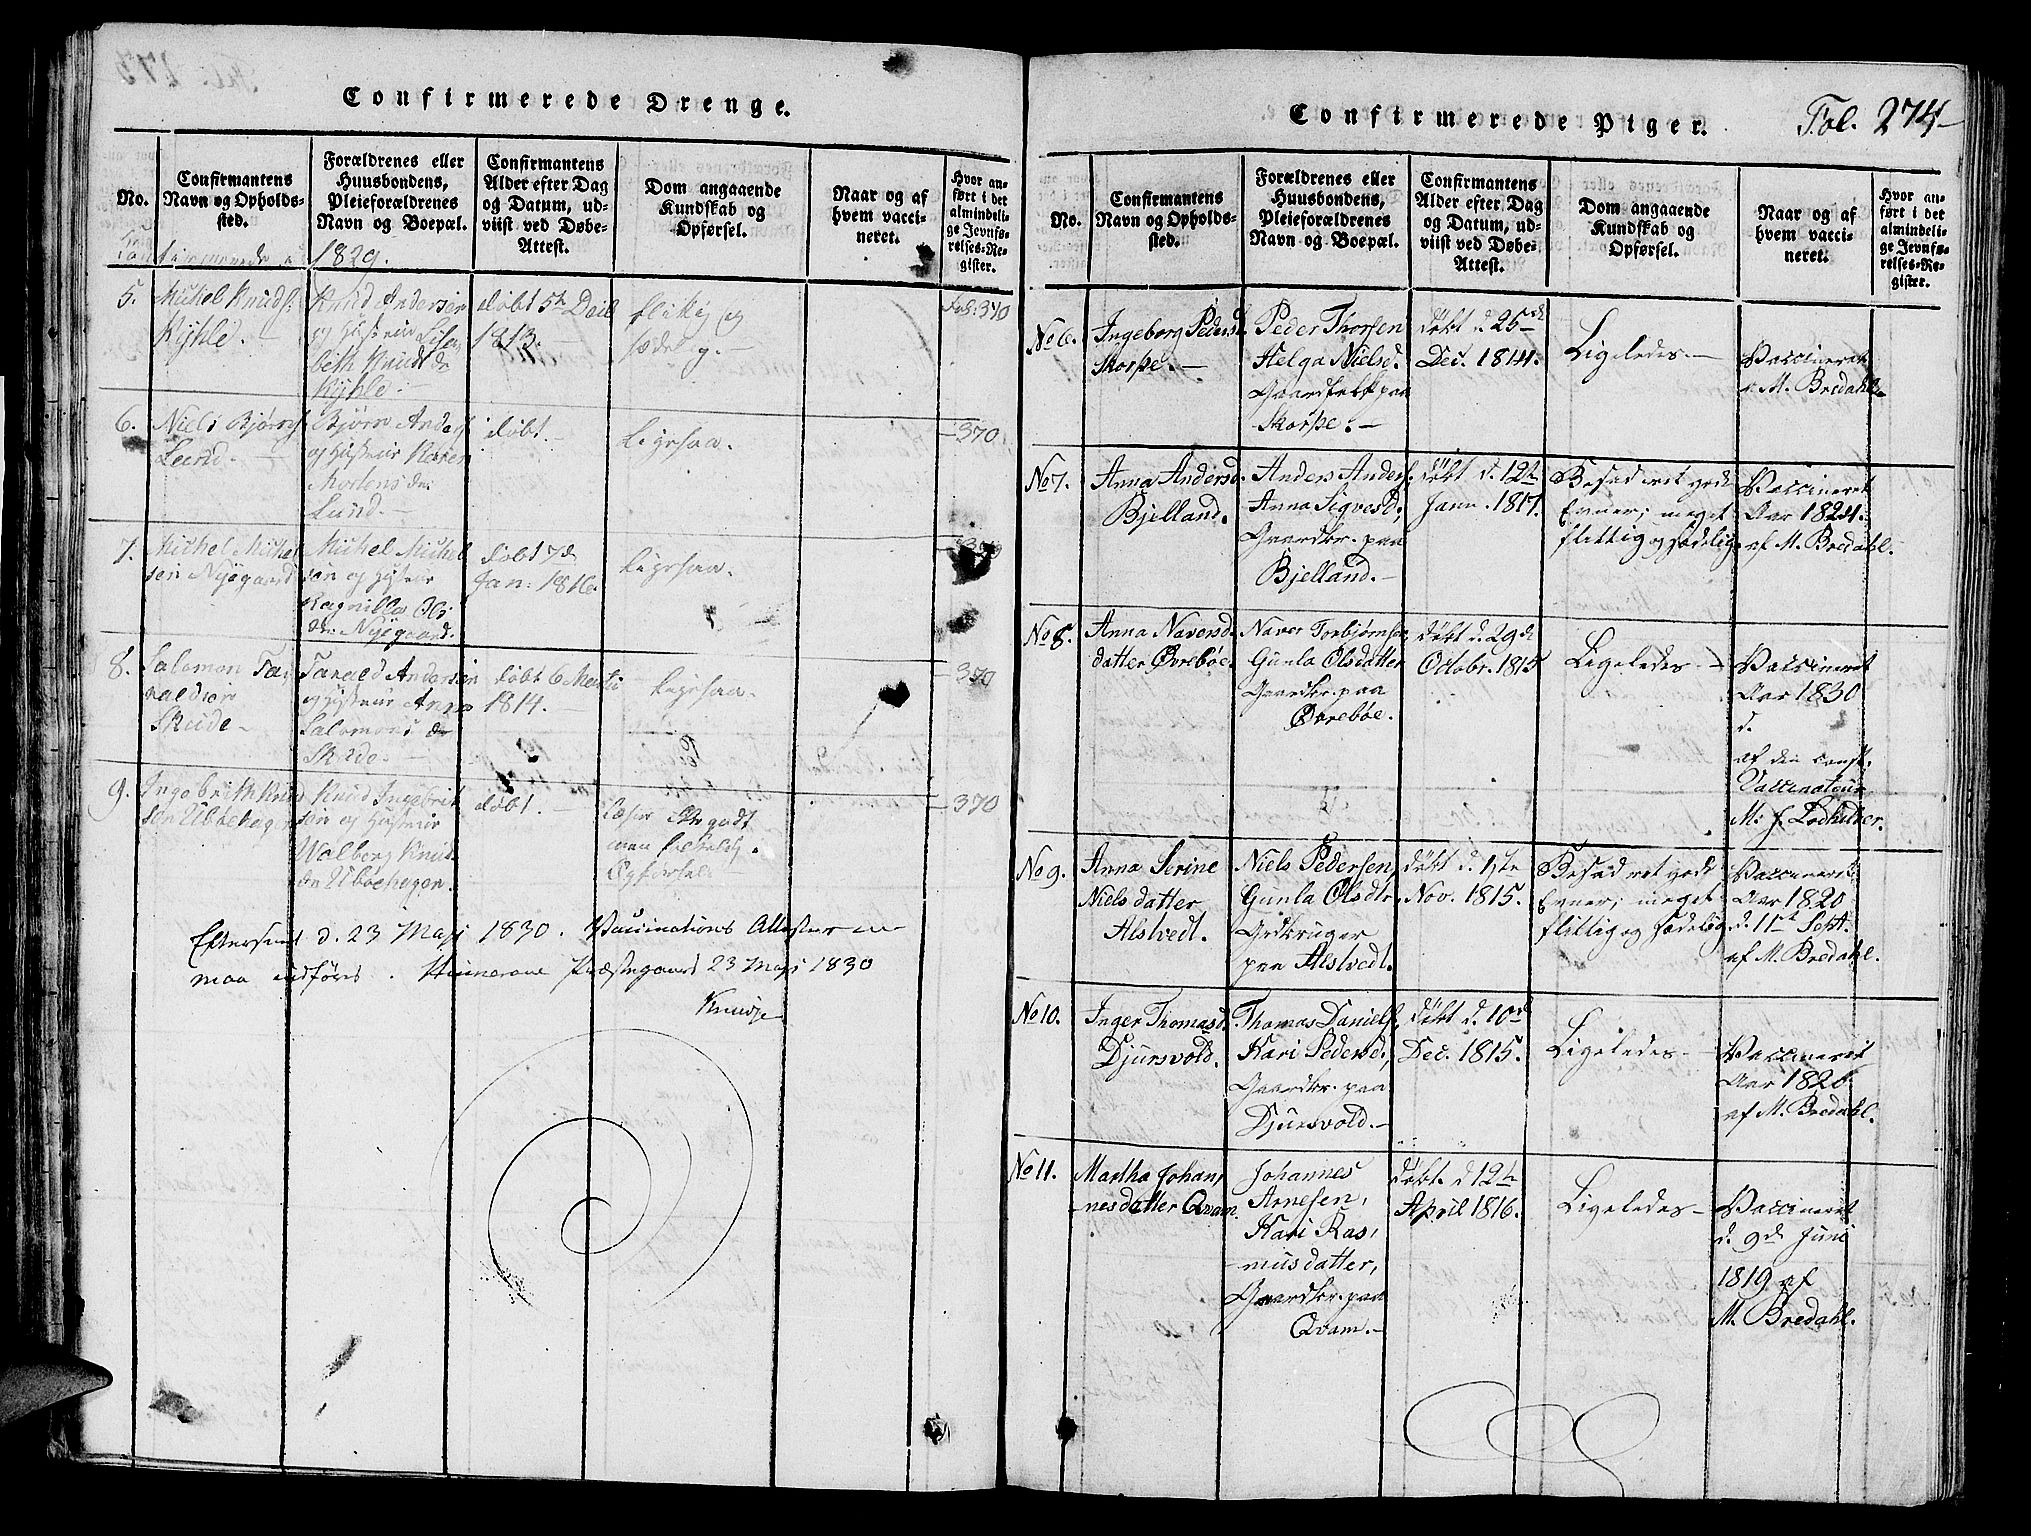 Confirmerede Drenge.
No.
Confirmantens
Navn og Opholds-
sted.
Forældrenes eller
Huusbondens,
Pleieforældrenes
Navn og Boepæl.
Confirmantens
Alder efter Dag
og Datum, ud-
viist ved Døbe-
Attest.
Dom angaaende
Kundskab og
Opførsel.
Naar og af
hvem vacci-
neret.
Hvor an-
ført i det
almindeli-
ge Jevnfø-
relses-Re-
gister.
Confirmerede i 1829.
5.
Michel Knuds.
Kyhle.
Knud Andersen
og Hustrue Lisa-
beth Knuds de
Kyhle.
døbt 5te
1813.
flittig og
sædelig.
Fol. 370
6.
Niels Bjørns.
Lund.
Bjørn Anders.
og Hustrue Karen
Mortens de.
Lund.
døbt
Ligesaa.
370
7.
Michel Michel
sen Nygaard
Michel Michel
sen og Hustrue
Ragnilla Ols
dr. Nygaard.
døbt 7de
Jan: 1816.
Ligesaa.
8.
Salomon Ta-
raldsen
Skude
Tarald Andersen
og Hustrue Anna
Salomons de
Skude.
døbt 6 Marti
1814.
Ligesaa.
370
9.
Ingebrith Knud
sen Ubøehagen
Knud Ingebrit
sen og Hustrue
Walborg Knuds
dr Ubøehagen.
døbt.
Læser godt
men
Opførsel
370
Efterseet d. 23 Maji 1830. Vaccinations Attester
maa anføres. Præstegaard 23 Maji 1830
Confirmerede Piger.
Fol. 274
No.
Confirmantens
Navn og Opholds-
sted.
Forældrenes eller
Huusbondens,
Pleieforældrenes
Navn og Boepæl.
Confirmantens
Alder efter Dag
og Datum, ud-
viist ved Døbe-
Attest.
Dom angaaende
Kundskab og
Opførsel.
Naar og af
hvem vacci-
neret.
Hvor an-
ført i det
almindeli-
ge Jevnfø-
relses-Re-
gister.
No 6.
Ingeborg Pedersd.
Skorpe.
Peder Thorsen
Helga Nielsd.
Gaardfolk paa
Skorpe.
døbt d. 25de
Dec. 1814.
Ligeledes
Vaccineret
af M. Bredahl.
No 7.
Anna Andersd.
Bjelland.
Anders Anders.
Anna Sigvesd.,
Gaardbr. paa
Bjelland.
døbt d. 12te
Janu. 1817.
Besad ret gode
Evner; meget
flittig og sædelig.
Vaccineret
Aar 1824.
af M. Bredahl.
No 8.
Anna Navers-
datter Øvrebøe.
Naver Torbjørnsen,
Gunla Olsdatter
Gaardbr. paa
Øvrebøe.
døbt d. 29de
Octobr. 1815
Ligeledes
Vaccineret
Aar 1830
d.
af den const.
Vaccinateur
M.
No 9.
Anna Serine
Nielsdatter
Alsvedt.
Niels Pedersen,
Gunla Olsdtr.
Grdbruger
paa Alsvedt.
døbt d. 1ste
Nov. 1815.
Besad ret gode
Evner; meget
flittig og sædelig.
Vaccineret
Aar 1820
d. 11te Sept.
af M. Bredahl.
No 10.
Inger Thomasd.
Djursvold.
Thomas Daniels.
Kari Pedersd.,
Gaardbr. paa
Djursvold.
døbt d. 10de
Dec. 1815.
Ligeledes
Vaccineret
Aar 1820
af M. Bredahl.
No 11.
Martha Johan-
nesdatter Qvam.
Johannes
Arnesen,
Kari Ras-
musdatter,
Gaardbr. paa
Qvam.
døbt. d 12te
April 1816.
Ligeledes
Vaccineret
d. 9de Juni
1819 af
M. Bredahl.